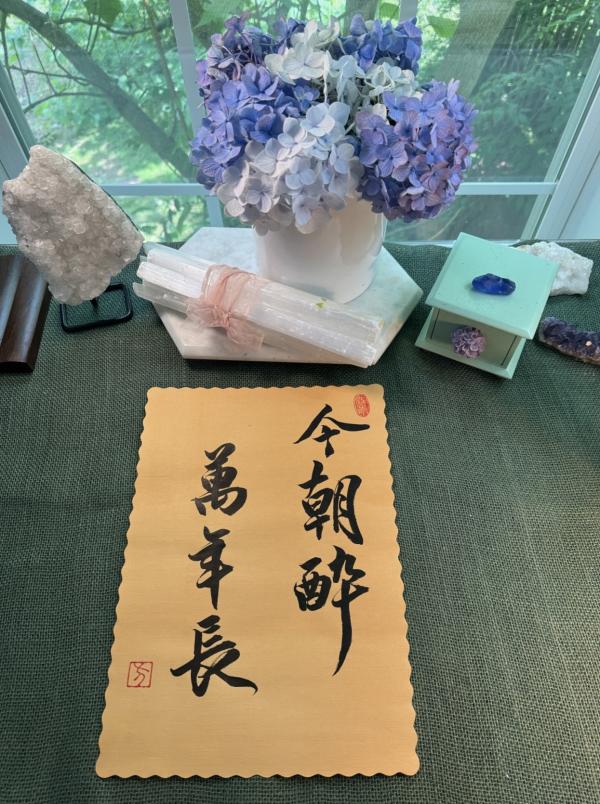 今朝醉
萬年長